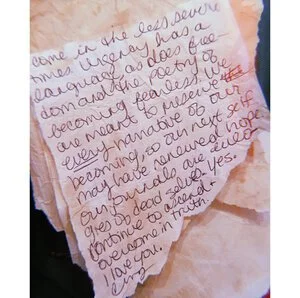 come in the less severe
times. Urgency has a
language, as does free-
dom and the poetry of
becoming fearless. We
are meant to preserve
every narrative of our
becoming, so our next self
may have renewed hope.
our journals are
gies of dead selves. Yes.
continue to ascend +
overcome in truth.
I love you.